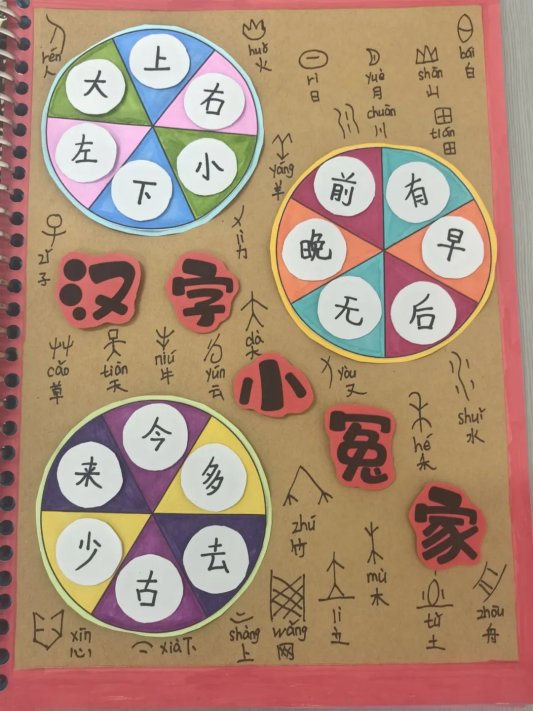 rén
人
huǒ
火
rì
日
yuè
月
shān
山
bái
白
chuān
川
tián
田
上
大
右
左
小
下
yáng
羊
前
有
晚
早
无
后
zǐ
子
lì
力
汉字小冤家
cǎo
草
tiān
天
niú
牛
yún
云
dà
大
yòu
又
hé
禾
shuǐ
水
今
来
多
少
去
古
zhú
竹
mù
木
xīn
心
xià 下
shàng
上
wǎng
网
lì
立
土
zhōu
舟